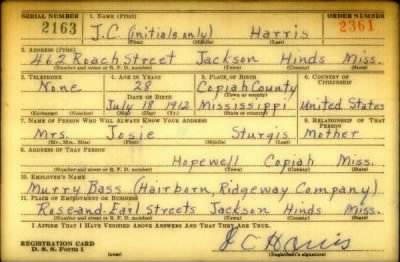 SERIAL NUMBER 1. NAME (Print) ORDER NUMBER
2163 J.C. (initials only) Harris 2361
(First) (Middle) (Last)
2. ADDRESS (Print)
462 Roach Street Jackson Hinds Miss.
(Number and street or R. F. D. number) (Town) (County) (State)
3. TELEPHONE 4. AGE IN YEARS 5. PLACE OF BIRTH 6. COUNTRY OF CITIZENSHIP
None 28 Copiah County
DATE OF BIRTH (Town or county)
July 18 1912 Mississippi United States
(Exchange) (Number) (Mo.) (Day) (Yr.) (State or country)
7. NAME OF PERSON WHO WILL ALWAYS KNOW YOUR ADDRESS 8. RELATIONSHIP OF THAT PERSON
Mrs. Josie Sturgis Mother
(Mr., Mrs., Miss) (First) (Middle) (Last)
9. ADDRESS OF THAT PERSON
Hopewell Copiah Miss.
(Number and street or R. F. D. number) (Town) (County) (State)
10. EMPLOYER'S NAME
Murry Bass (Hairborn, Ridgeway Company)
11. PLACE OF EMPLOYMENT OR BUSINESS
Rose and Earl Streets Jackson Hinds Miss.
(Number and street or R. F. D. number) (Town) (County) (State)
I AFFIRM THAT I HAVE VERIFIED ABOVE ANSWERS AND THAT THEY ARE TRUE.
REGISTRATION CARD J C Harris
D. S. S. Form 1 (Registrant's signature)